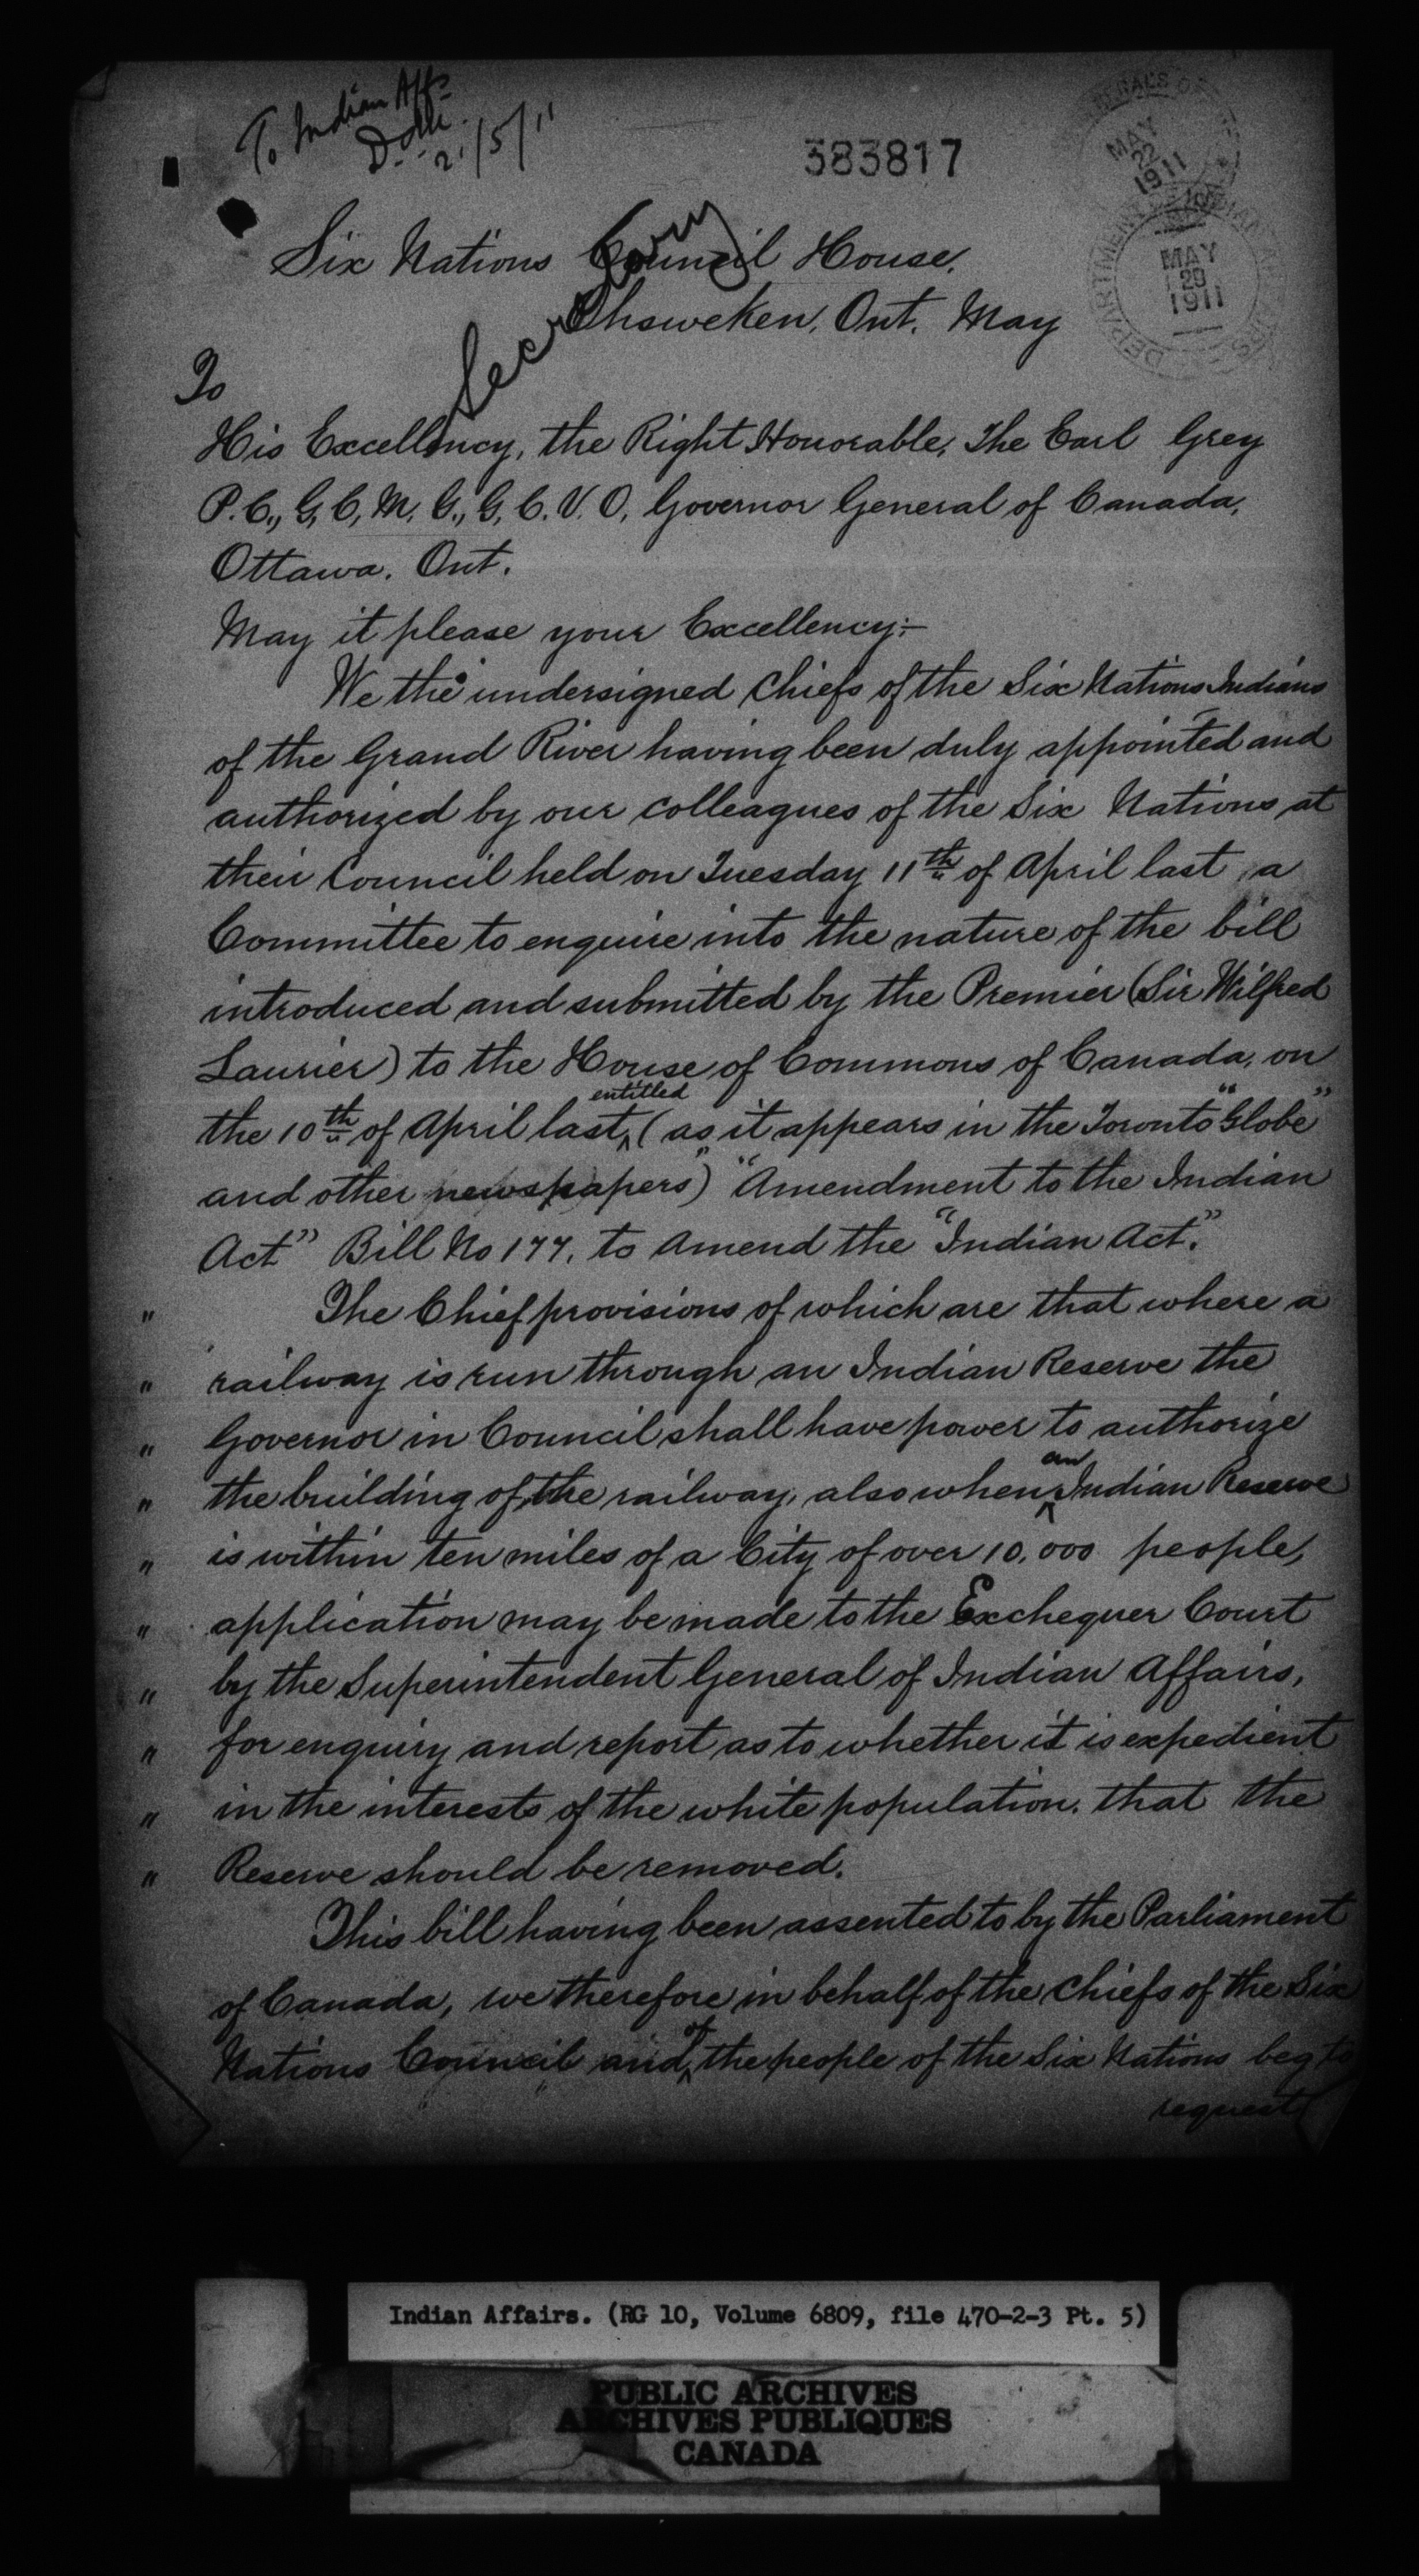 To Indian Affs
21/5/11
383817
MAY
22
1911
DEPARTMENT OF INDIAN AFFAIRS
MAY
29
1911
Secretary
Six Nations Council House.
Ohsweken, Ont. May
To
His Excellency, the Right Honorable, The Earl Grey
P.C., G.C.M.G., G.C.V.O, Governor General of Canada,
Ottawa. Ont.
May it please your Excellency:-
We the undersigned Chiefs of the Six Nations Indians
of the Grand River having been duly appointed and
authorized by our colleagues of the Six Nations at
their Council held on Tuesday 11th of April last, a
Committee to enquire into the nature of the bill
introduced and submitted by the Premier (Sir Wilfred
Laurier) to the House of Commons of Canada, on
the 10th of April last, entitled (as it appears in the Toronto "Globe"
and other newspapers") "Amendment to the Indian
Act" Bill No 177. to Amend the "Indian Act."
" The Chief provisions of which are that where a
" railway is run through an Indian Reserve the
" Governor in Council shall have power to authorize
" the building of the railway, also when an Indian Reserve
" is within ten miles of a City of over 10,000 people,
" application may be made to the Exchequer Court
" by the Superintendent General of Indian Affairs,
" for enquiry and report as to whether it is expedient
" in the interests of the white population, that the
" Reserve should be removed.
This bill having been assented to by the Parliament
of Canada, we therefore in behalf of the Chiefs of the Six
Nations Council and of the people of the Six Nations beg to
request
Indian Affairs. (RG 10, Volume 6809, file 470-2-3 Pt. 5)
PUBLIC ARCHIVES
ARCHIVES PUBLIQUES
CANADA